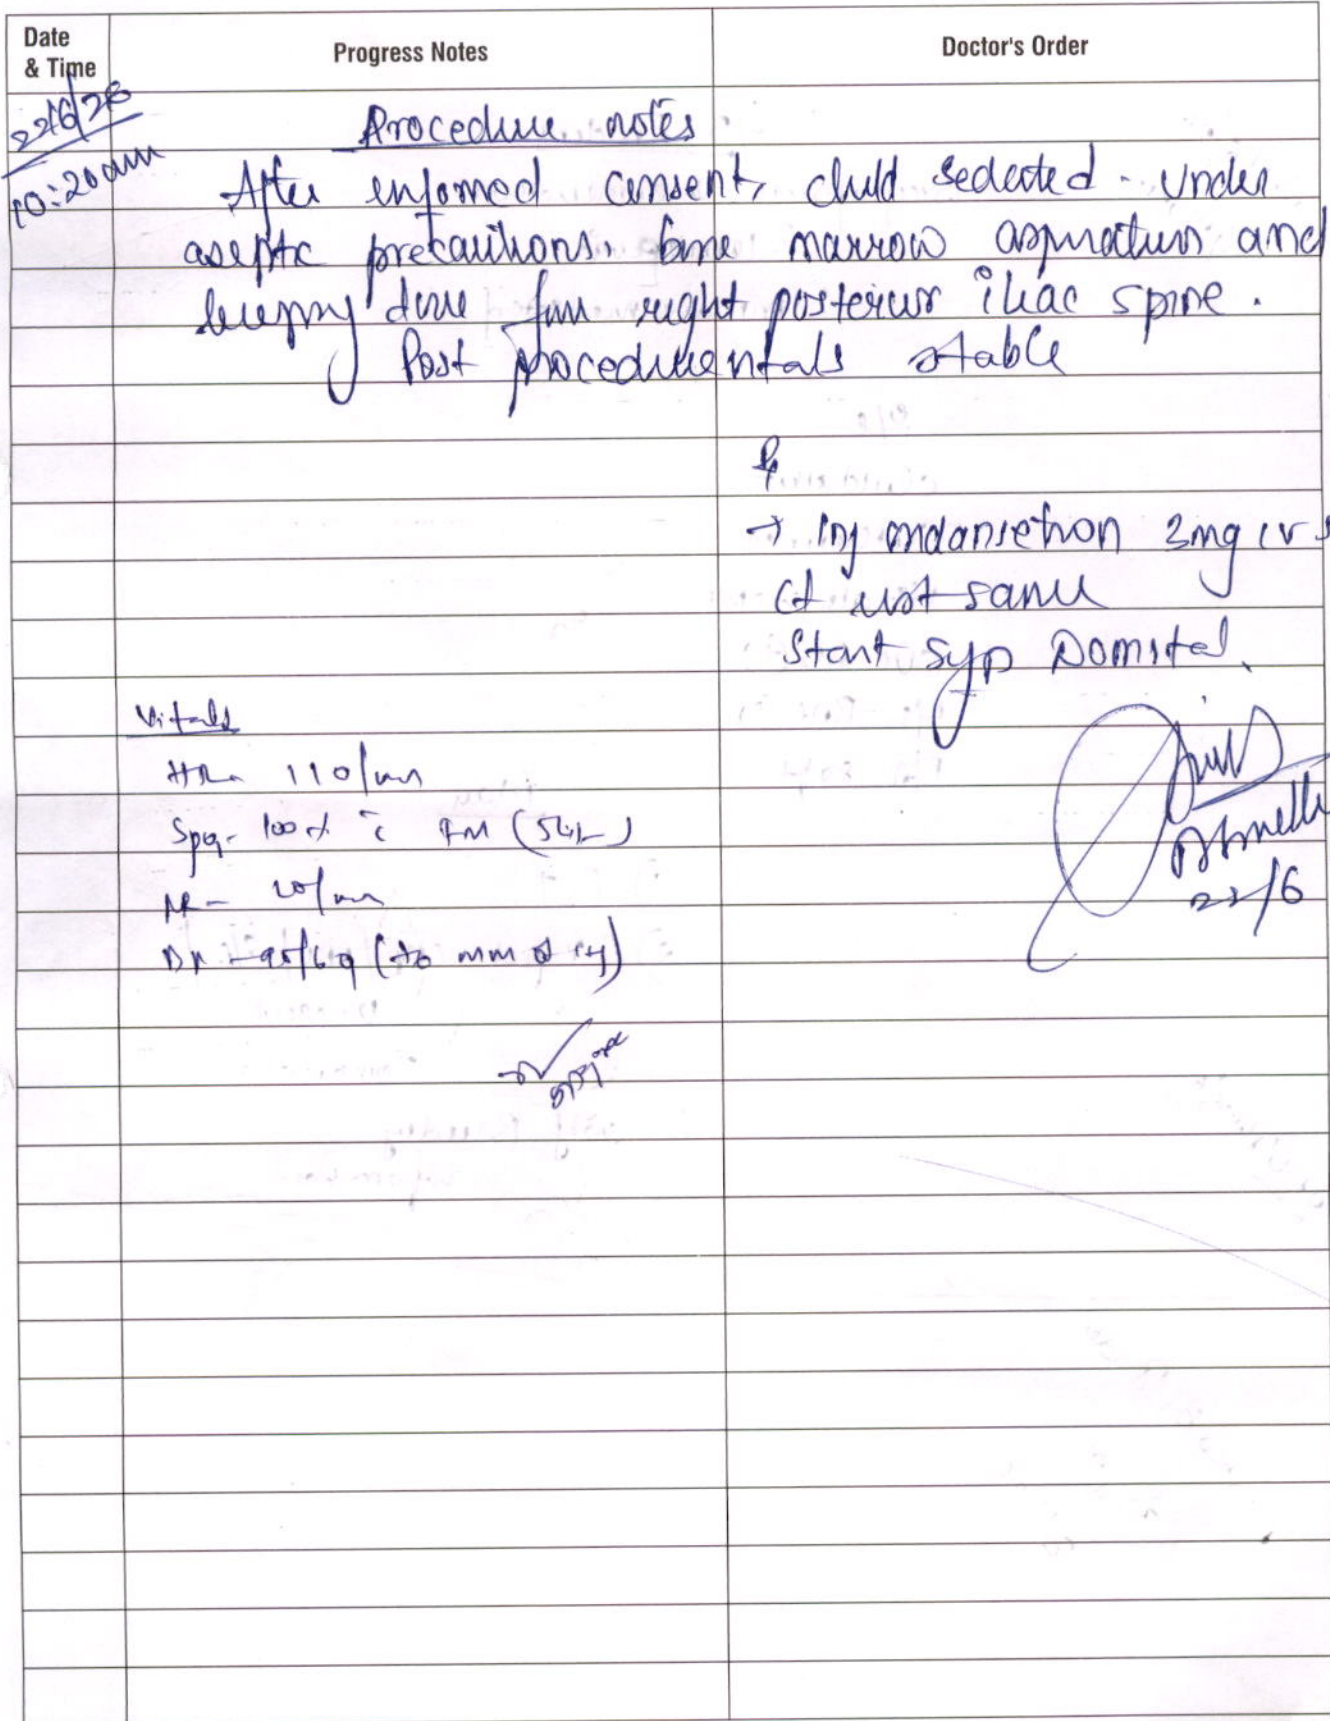 Date & Time
Progress Notes
Doctor's Order
10:20am
Procedure notes
After informed consent, child sedated. Under
aseptic precautions. bone marrow aspiration and
biopsy done from right posterior iliac spine.
Post procedure vitals stable
→ Inj ondansetron 3mg iv s
Ct rest same
Start syp Domstal.
Vitals
HR- 110/min
SpO2- 100% c̄ FM (5L)
RR- 20/min
22/6